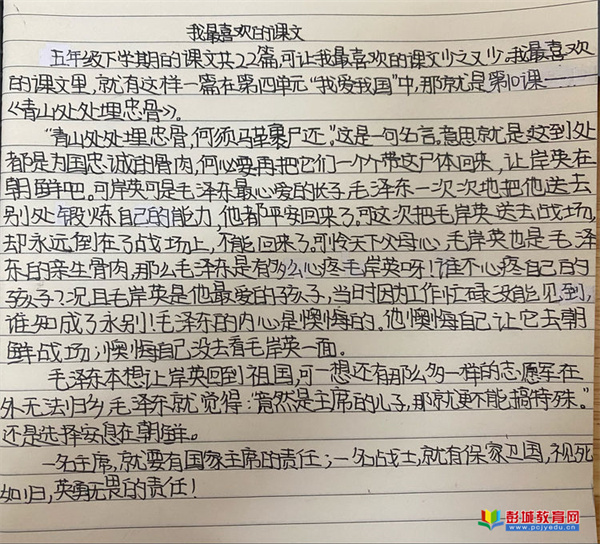 我最喜欢的课文
五年级下学期的课文共22篇,可让我最喜欢的课文少之又少。我最喜欢
的课文里,就有这样一篇在第四单元“我爱我国”中,那就是第10课——
《青山处处埋忠骨》。
“青山处处埋忠骨,何须马革裹尸还。”这是一句名言。意思就是:这到处
都是为国忠诚的骨肉,何必要再把它们一个个带这尸体回来,让岸英在
朝鲜吧。可岸英可是毛泽东最心爱的长子,毛泽东一次次地把他送去
别处锻炼自己的能力,他都平安回来了。可这次把毛岸英送去战场,
却永远倒在了战场上,不能回来了。可怜天下父母心,毛岸英也是毛泽
东的亲生骨肉,那么毛泽东是有多么心疼毛岸英呀!谁不心疼自己的
孩子?况且毛岸英是他最爱的孩子,当时因为工作忙碌没能见到,
谁知成了永别!毛泽东的内心是懊悔的。他懊悔自己让它去朝
鲜战场;懊悔自己没去看毛岸英一面。
毛泽东本想让岸英回到祖国,可一想还有那么多一样的志愿军在
外无法归乡,毛泽东就觉得:“竟然是主席的儿子,那就更不能搞特殊。”
还是选择安息在朝鲜。
一名主席,就要有国家主席的责任;一名战士,就有保家卫国,视死
如归,英勇无畏的责任!
彭城教育网
www.pcjyedu.cn